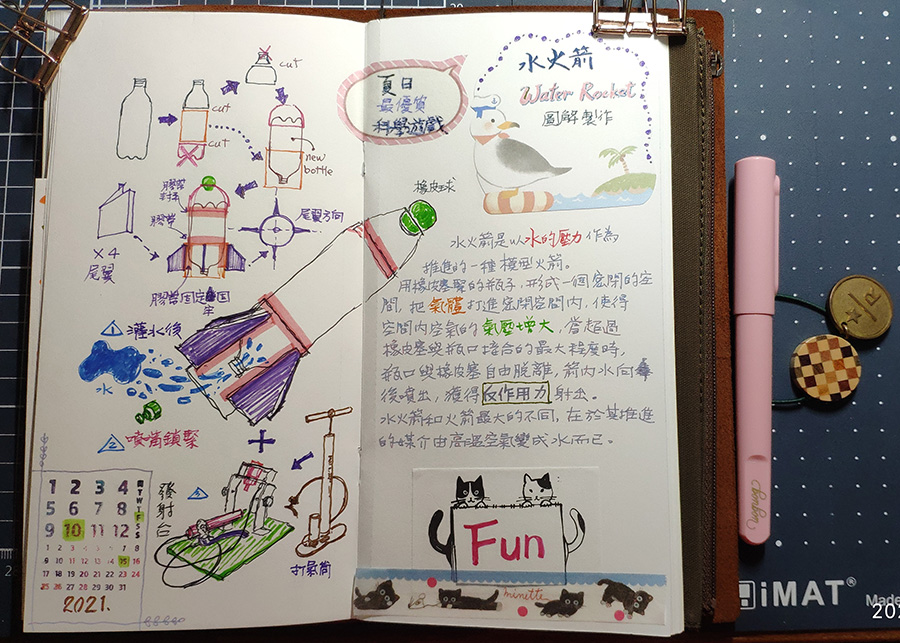 cut
cut
new
bottle
膠帶
膠帶
尾翼方向
×4
尾翼
膠帶固定
牢
1
灌水後
水
2
噴嘴鎖緊
3
發射台
打氣筒
1 2 3 4
5 6 7 8
9 10 11 12
M
T
W
T
F
S
S
1 2 3 4 5 6 7 8
9 10 11 12 13 14 15 16
17 18 19 20 21 22 23 24
25 26 27 28 29 30 31
2021.
夏日
最優質
科學遊戲
水火箭
Water Rocket
圖解製作
橡皮球
水火箭是以水的壓力作為
推進的一種模型火箭。
用橡皮塞緊的瓶子,形成一個密閉的空
間,把氣體打進密閉空間內,使得
空間內空氣的氣壓增大,當超過
橡皮塞與瓶口接合的最大程度時,
瓶口與橡皮塞自由脫離,箭內水向
後噴出,獲得反作用力射出。
水火箭和火箭最大的不同,在於其推進
的媒介由高溫空氣變成水而已。
Fun
minette
bonbon
iMAT®
Made
202